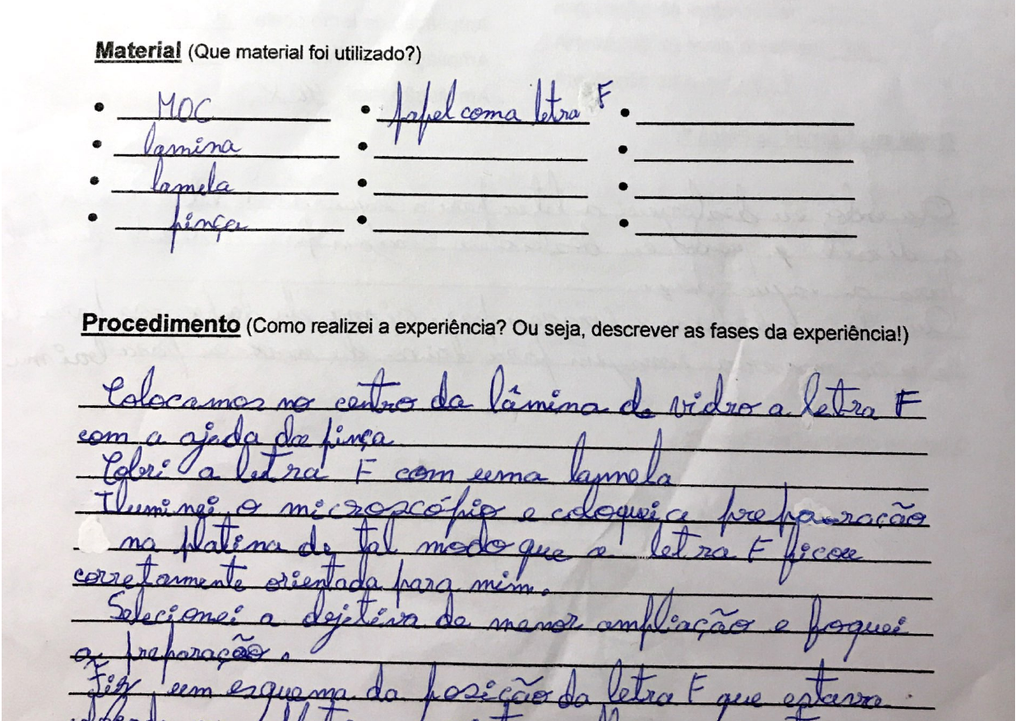 Material (Que material foi utilizado?)
MOC
lamina
lamela
pinça
papel com a letra F
Procedimento (Como realizei a experiência? Ou seja, descrever as fases da experiência!)
Colocamos no centro da lâmina de vidro a letra F
com a ajuda da pinça
Cobri a letra F com uma lamela
Iluminei o microscópio e coloquei a preparação
na platina de tal modo que a letra F ficou
corretamente orientada para mim.
Selecionei a objetiva de menor ampliação e foquei
a preparação.
Fiz um esquema da posição da letra F que estava